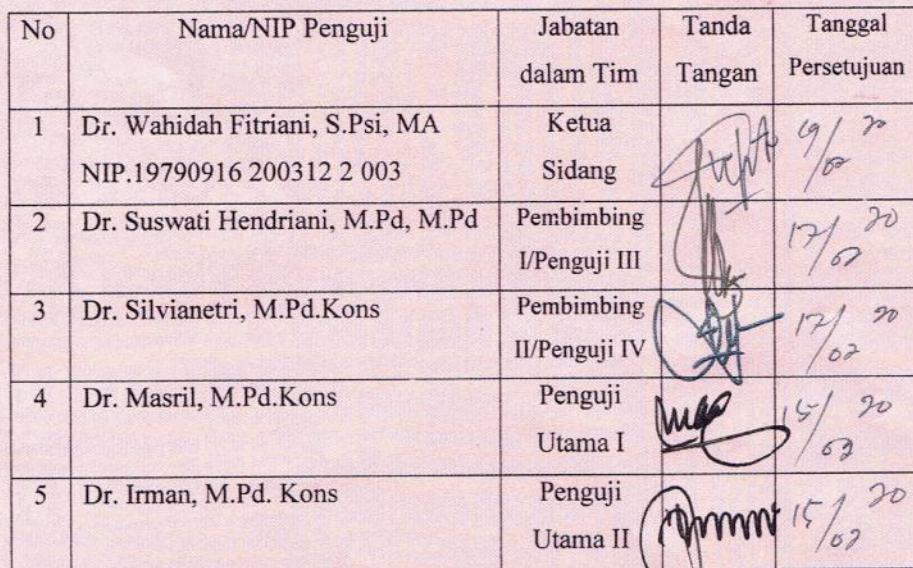 No Nama/NIP Penguji Jabatan dalam Tim Tanda Tangan Tanggal Persetujuan
1 Dr. Wahidah Fitriani, S.Psi, MA Ketua
NIP.19790916 200312 2 003 Sidang
19/02 20
2 Dr. Suswati Hendriani, M.Pd, M.Pd Pembimbing
I/Penguji III
17/02 20
3 Dr. Silvianetri, M.Pd.Kons Pembimbing
II/Penguji IV
17/02 20
4 Dr. Masril, M.Pd.Kons Penguji
Utama I
15/02 20
5 Dr. Irman, M.Pd. Kons Penguji
Utama II
15/02 20